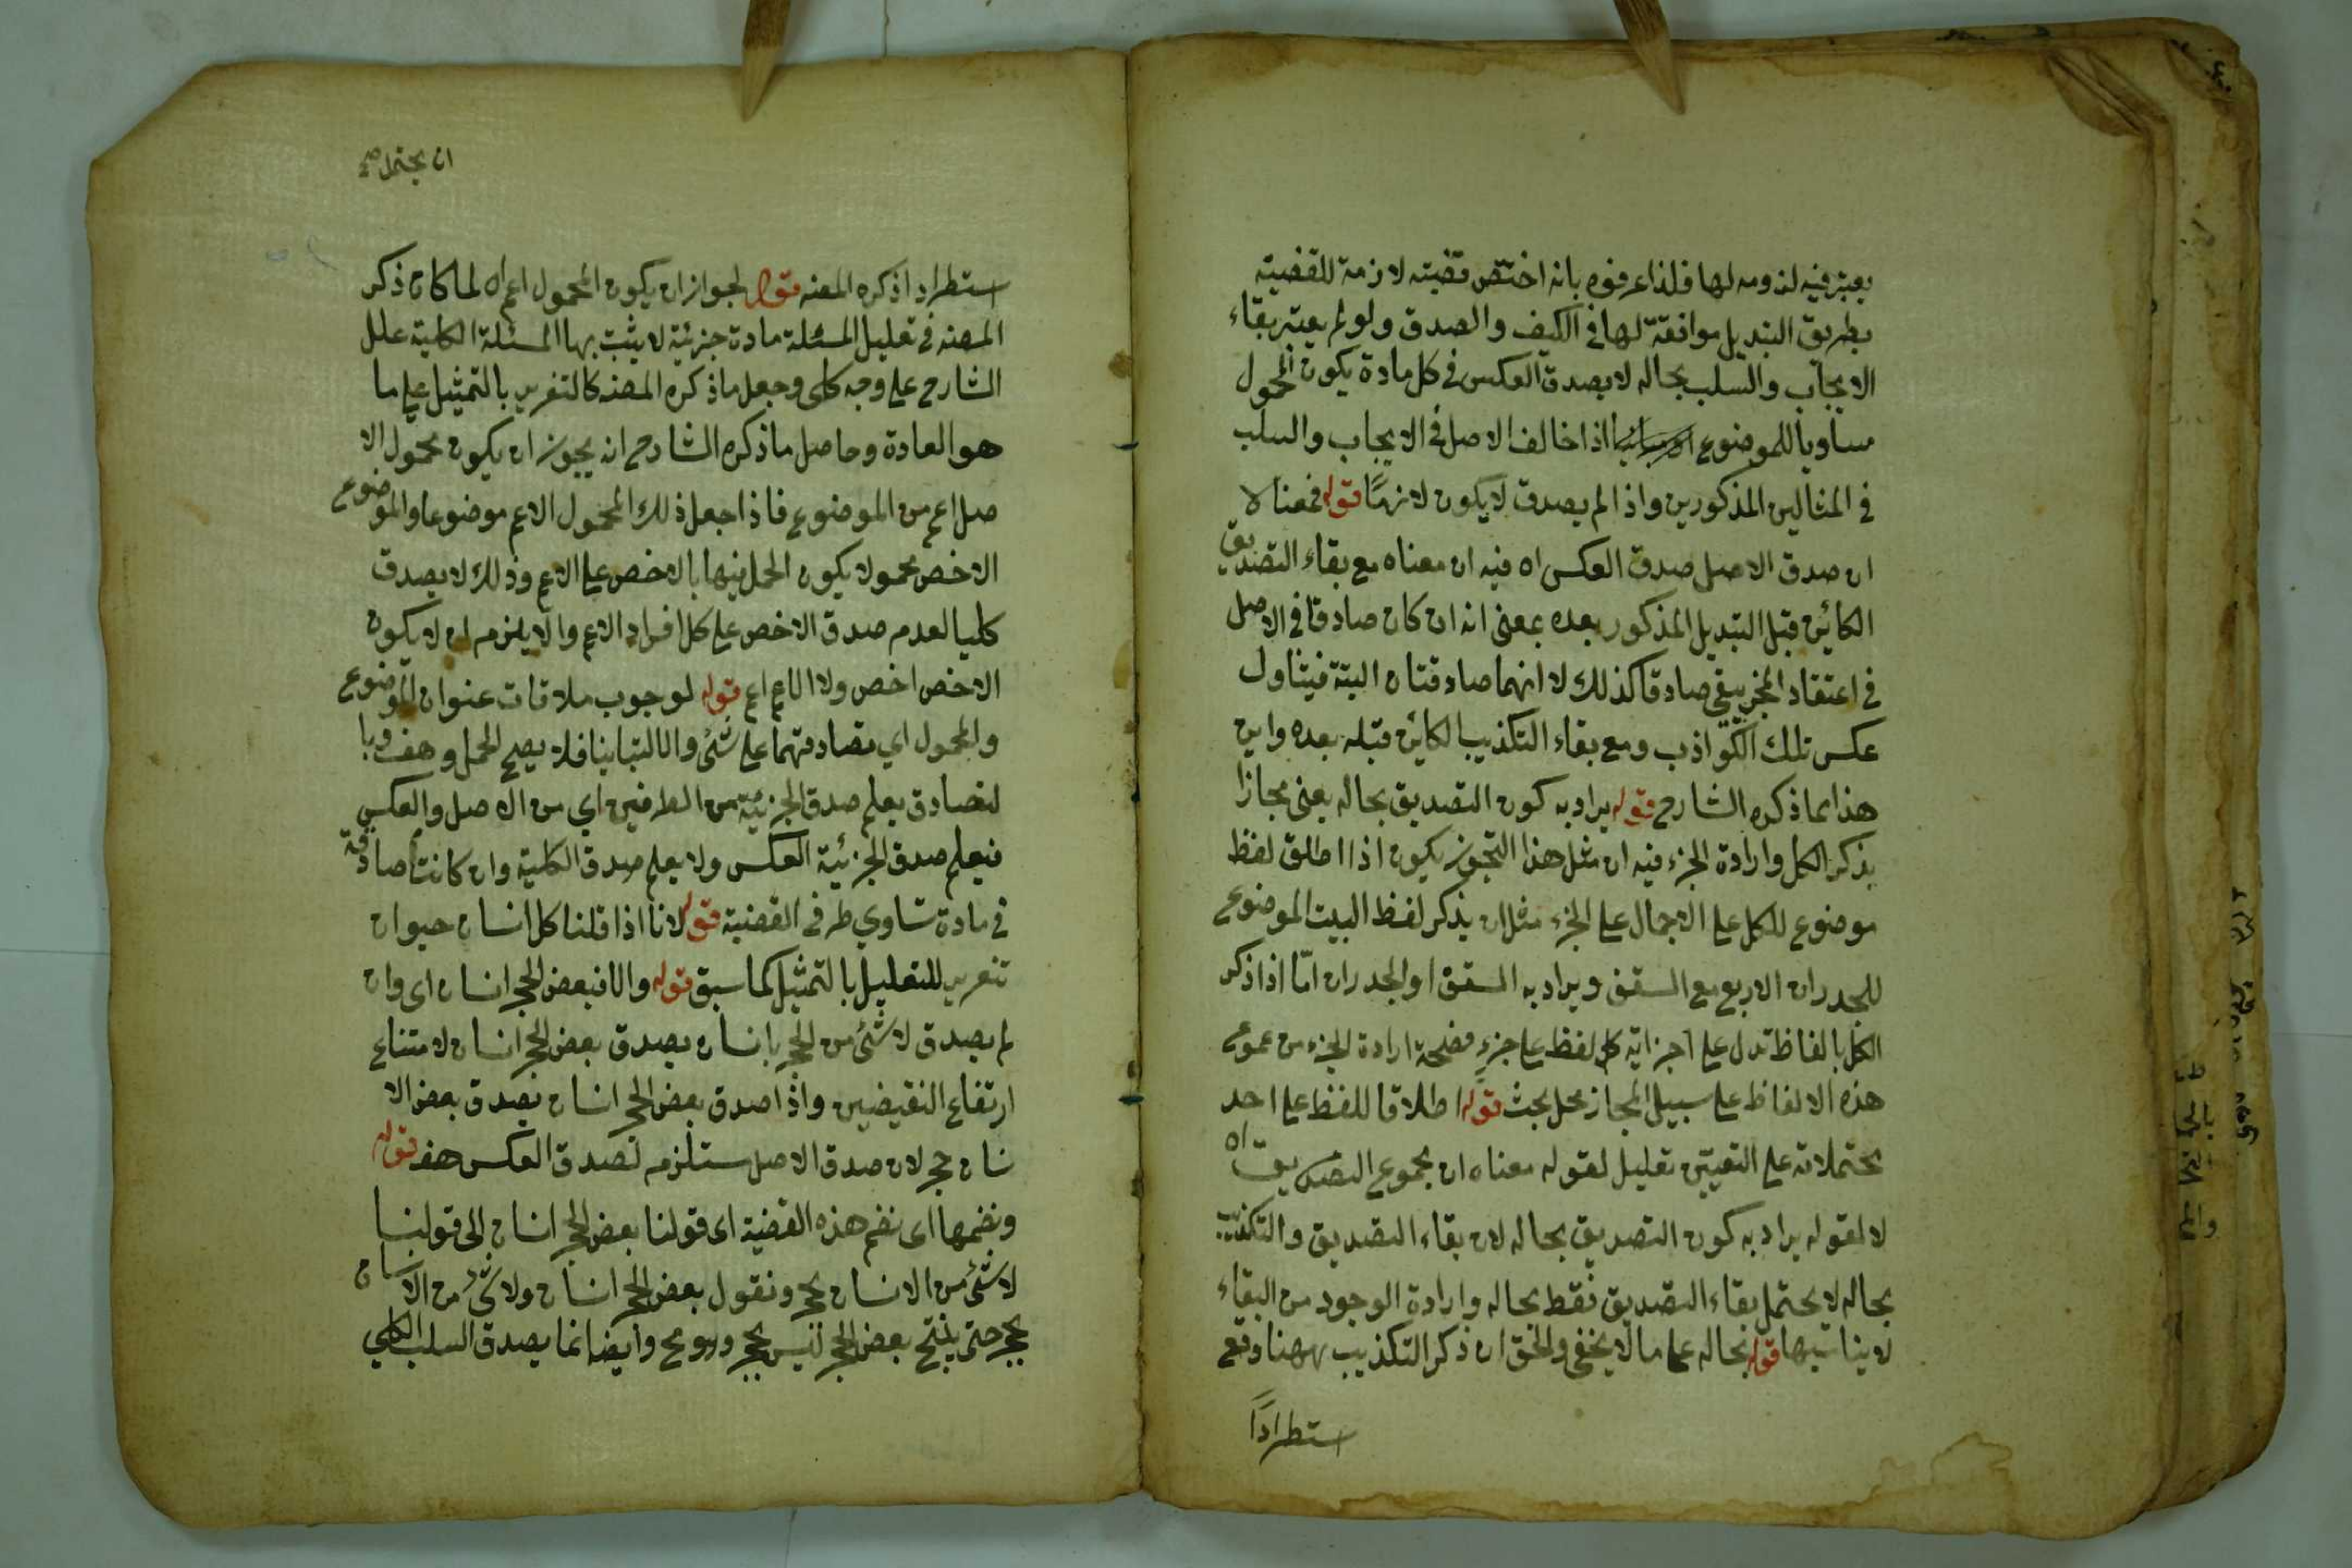 يعتبر فيه لزومه لها فلذا عرفوه بانه اختص قضية لازمة للقضية
بطريق التبديل موافقة لها في الكيف والصدق ولو لم يعتبر بقاء
الايجاب والسلب بحاله لا يصدق العكس في كل مادة يكون المحمول
مساويا للموضوع اذا خالف الاصل في الايجاب والسلب
في المثالين المذكورين واذا لم يصدق لا يكون لازمًا قوله فمعناه
ان صدق الاصل صدق العكس اه فيه ان معناه مع بقاء التصديق
الكائن قبل التبديل المذكور بعده بمعنى انه ان كان صادقا في الاصل
في اعتقاد المخبر يبقى صادقا كذلك لا انهما صادقتان البتة فيتناول
عكس تلك الكواذب ومع بقاء التكذيب الكائن قبله بعده واين
هذا مما ذكره الشارح قوله يراد به كون التصديق بحاله يعنى مجازا
بذكر الكل وارادة الجزء فيه ان مثل هذا التجوز يكون اذا اطلق لفظ
موضوع للكل على الاجمال على الجزء مثل ان يذكر لفظ البيت الموضوع
للجدران الاربع مع السقف ويراد به السقف او الجدران امّا اذا ذكر
الكل بالفاظ تدل على اجزائه كل لفظ على جزءٍ فصحة ارادة الجزء من عموع
هذه الالفاظ على سبيل المجاز محل بحث قوله اطلاقا للفظ على احد
محتملاته على التعيين تعليل لقوله معناه ان مجموع التصديق اه
لا لقوله يراد به كون التصديق بحاله لان بقاء التصديق والتكذيب
بحاله لا يحتمل بقاء التصديق فقط بحاله وارادة الوجود من البقاء
لا يناسبها قوله بحاله على ما لا يخفى والحق ان ذكر التكذيب ههنا وقع
استطرادًا
ان يحتمل صح
استطرادا ذكره المصنه قوله لجواز ان يكون المحمول اعم اه لما كان ذكر
المصنه في تعليل المسئلة مادة جزئية لا يثبت بها المسئلة الكلية علل
الشارح على وجه كلى وجعل ما ذكره المصنه كالتفرير بالتمثيل على ما
هو العادة وحاصل ما ذكره الشارح انه يجوز ان يكون محمول الا
صل اعم من الموضوع فاذا جعل ذلك المحمول الاعم موضوعا والموضوع
الاخص محمولا يكون الحمل فيها بالاخص على الاعم وذلك لا يصدق
كليا لعدم صدق الاخص على كل افراد الاعم والا يلزم ان لا يكون
الاخص اخص ولا الاعم اعم قوله لوجوب ملاقات عنوان الموضوع
والمحمول اي تصادقهما على شئ والا لتباينا فلا يصح الحمل وهف وبا
لتصادق يعلم صدق الجزئية من الطرفين اي من الاصل والعكس
فيعلم صدق الجزئية العكس ولا يعلم صدق الكلية وان كانت صادقة
في مادة تساوي طرفى القضية قوله لانا اذا قلنا كل انسان حيوان
تنعرير للتعليل بالتمثيل كما سبق قوله والا فبعض الحجر انسان اى وان
لم يصدق لا شئ من الحجر بانسان يصدق بعض الحجر انسان لامتناع
ارتفاع النقيضين واذا صدق بعض الحجر انسان يصدق بعض الا
نسان حجر لان صدق الاصل مستلزم لصدق العكس هف قوله
ونضمها اى نضم هذه القضية اى قولنا بعض الحجر انسان الى قولنا
لا شئ من الانسان بحجر ونقول بعض الحجر انسان ولا شئ من الانسان
بحجر حتى ينتج بعض الحجر ليس بحجر وهو مح وايضا انما يصدق السلب الكلي